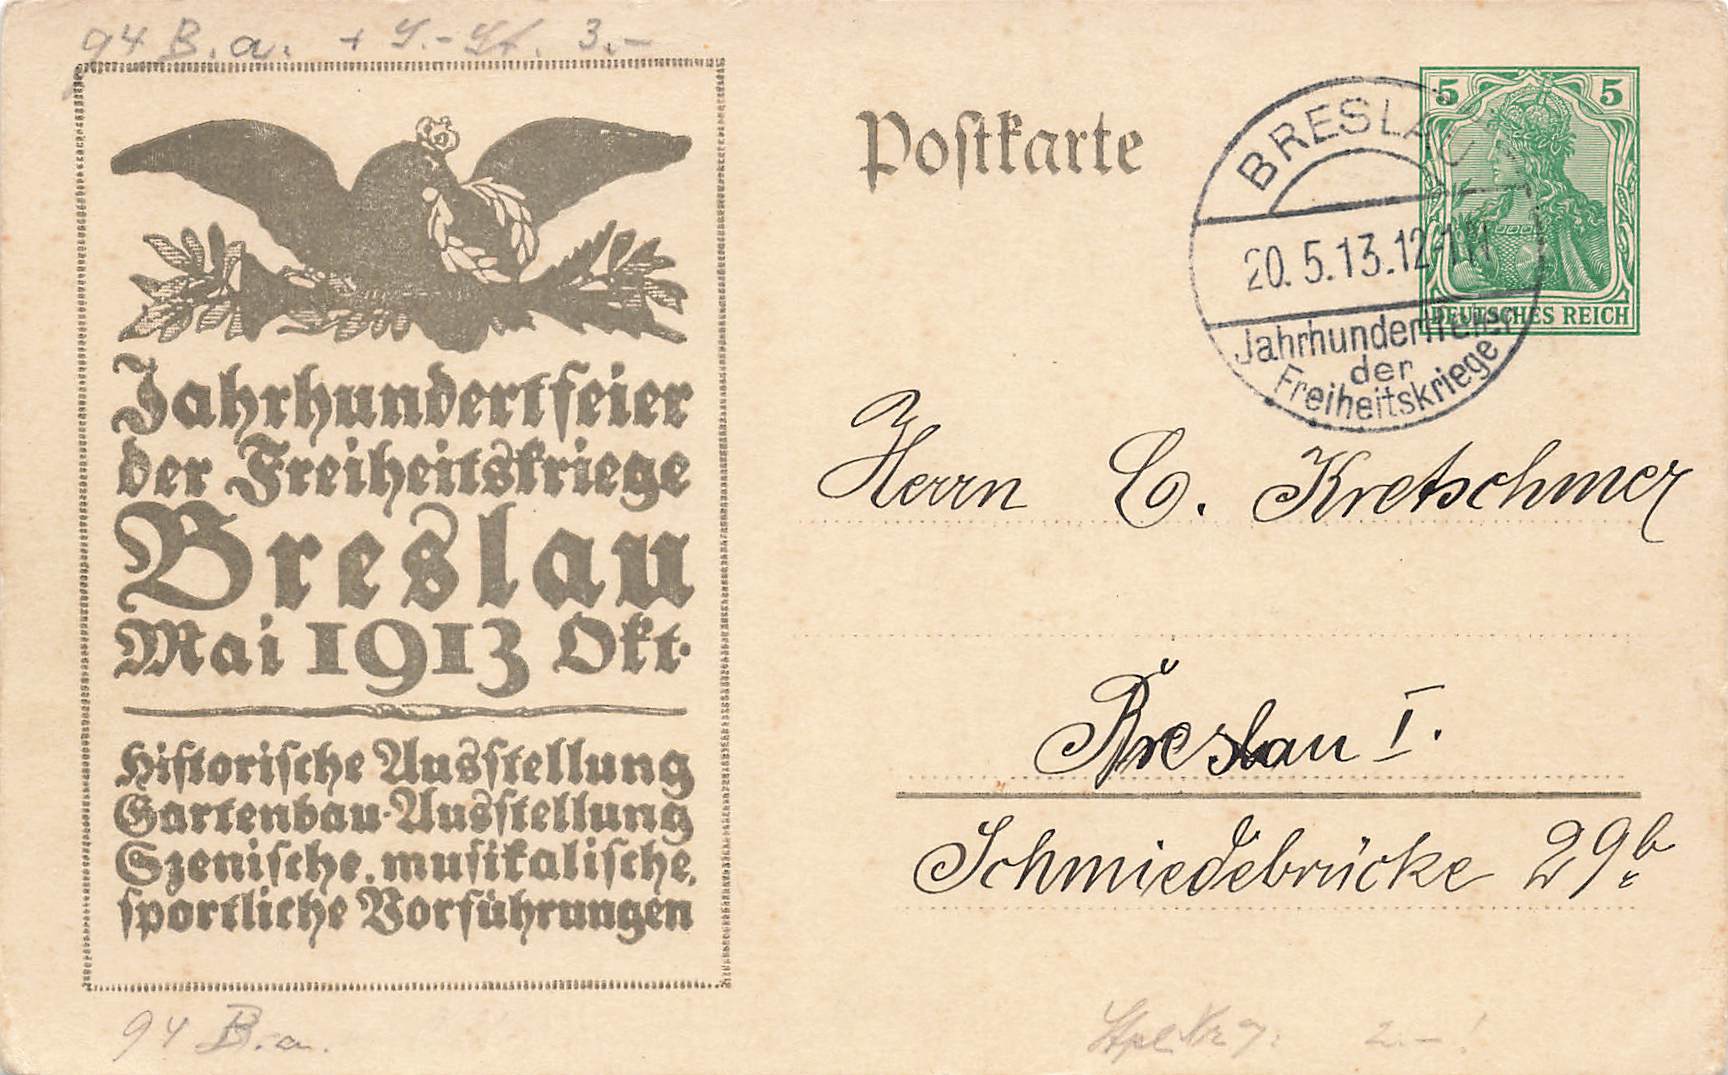 94 B. a. + 3.-
Jahrhundertfeier
der Freiheitskriege
Breslau
Mai 1913 Okt.
Historische Ausstellung
Gartenbau-Ausstellung
Szenische, musikalische,
sportliche Vorführungen
94 B. a.
Postkarte
BRESLAU
20.5.13.12-1N
Jahrhundertfeier
der
Freiheitskriege
5 5
DEUTSCHES REICH
Herrn C. Kretschmer
Breslau I.
Schmiedebrücke 29b
2.-!